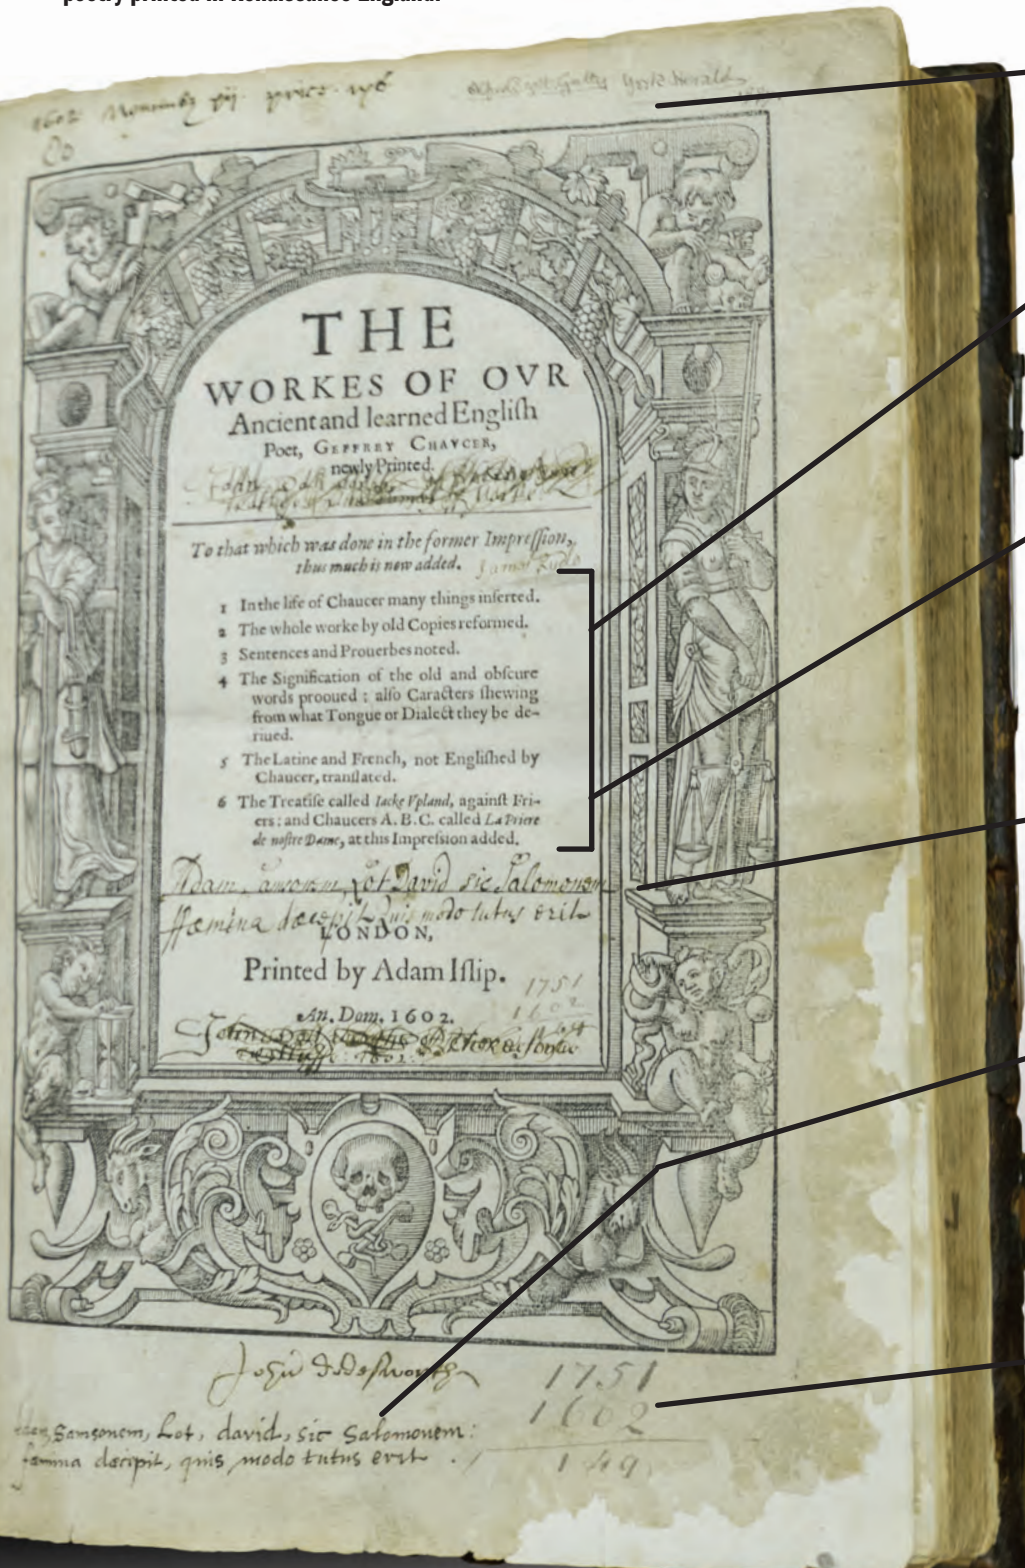 poetry printed in Renaissance England.
1602
THE
WORKES OF OVR
Ancient and learned Engliſh
Poet, GEFFREY CHAVCER,
newly Printed.
To that which was done in the former Impreſſion,
thus much is new added.
1 In the life of Chaucer many things inſerted.
2 The whole worke by old Copies reformed.
3 Sentences and Prouerbes noted.
4 The Signification of the old and obſcure
words prooued : alſo Caracters ſhewing
from what Tongue or Dialect they be de-
riued.
5 The Latine and French, not Engliſhed by
Chaucer, tranſlated.
6 The Treatiſe called Iacke Vpland, againſt Fri-
ers: and Chaucers A.B.C. called La Priere
de noſtre Dame, at this Impreſsion added.
Adam, Lot David sic Salomonem
ffemina decepit quis modo tutus erit
LONDON,
Printed by Adam Iſlip.
1751
1602
An. Dom. 1602.
John
1751
1602
149
Samsonem, Lot, david, sic Salomonem:
decipit, quis modo tutus erit.